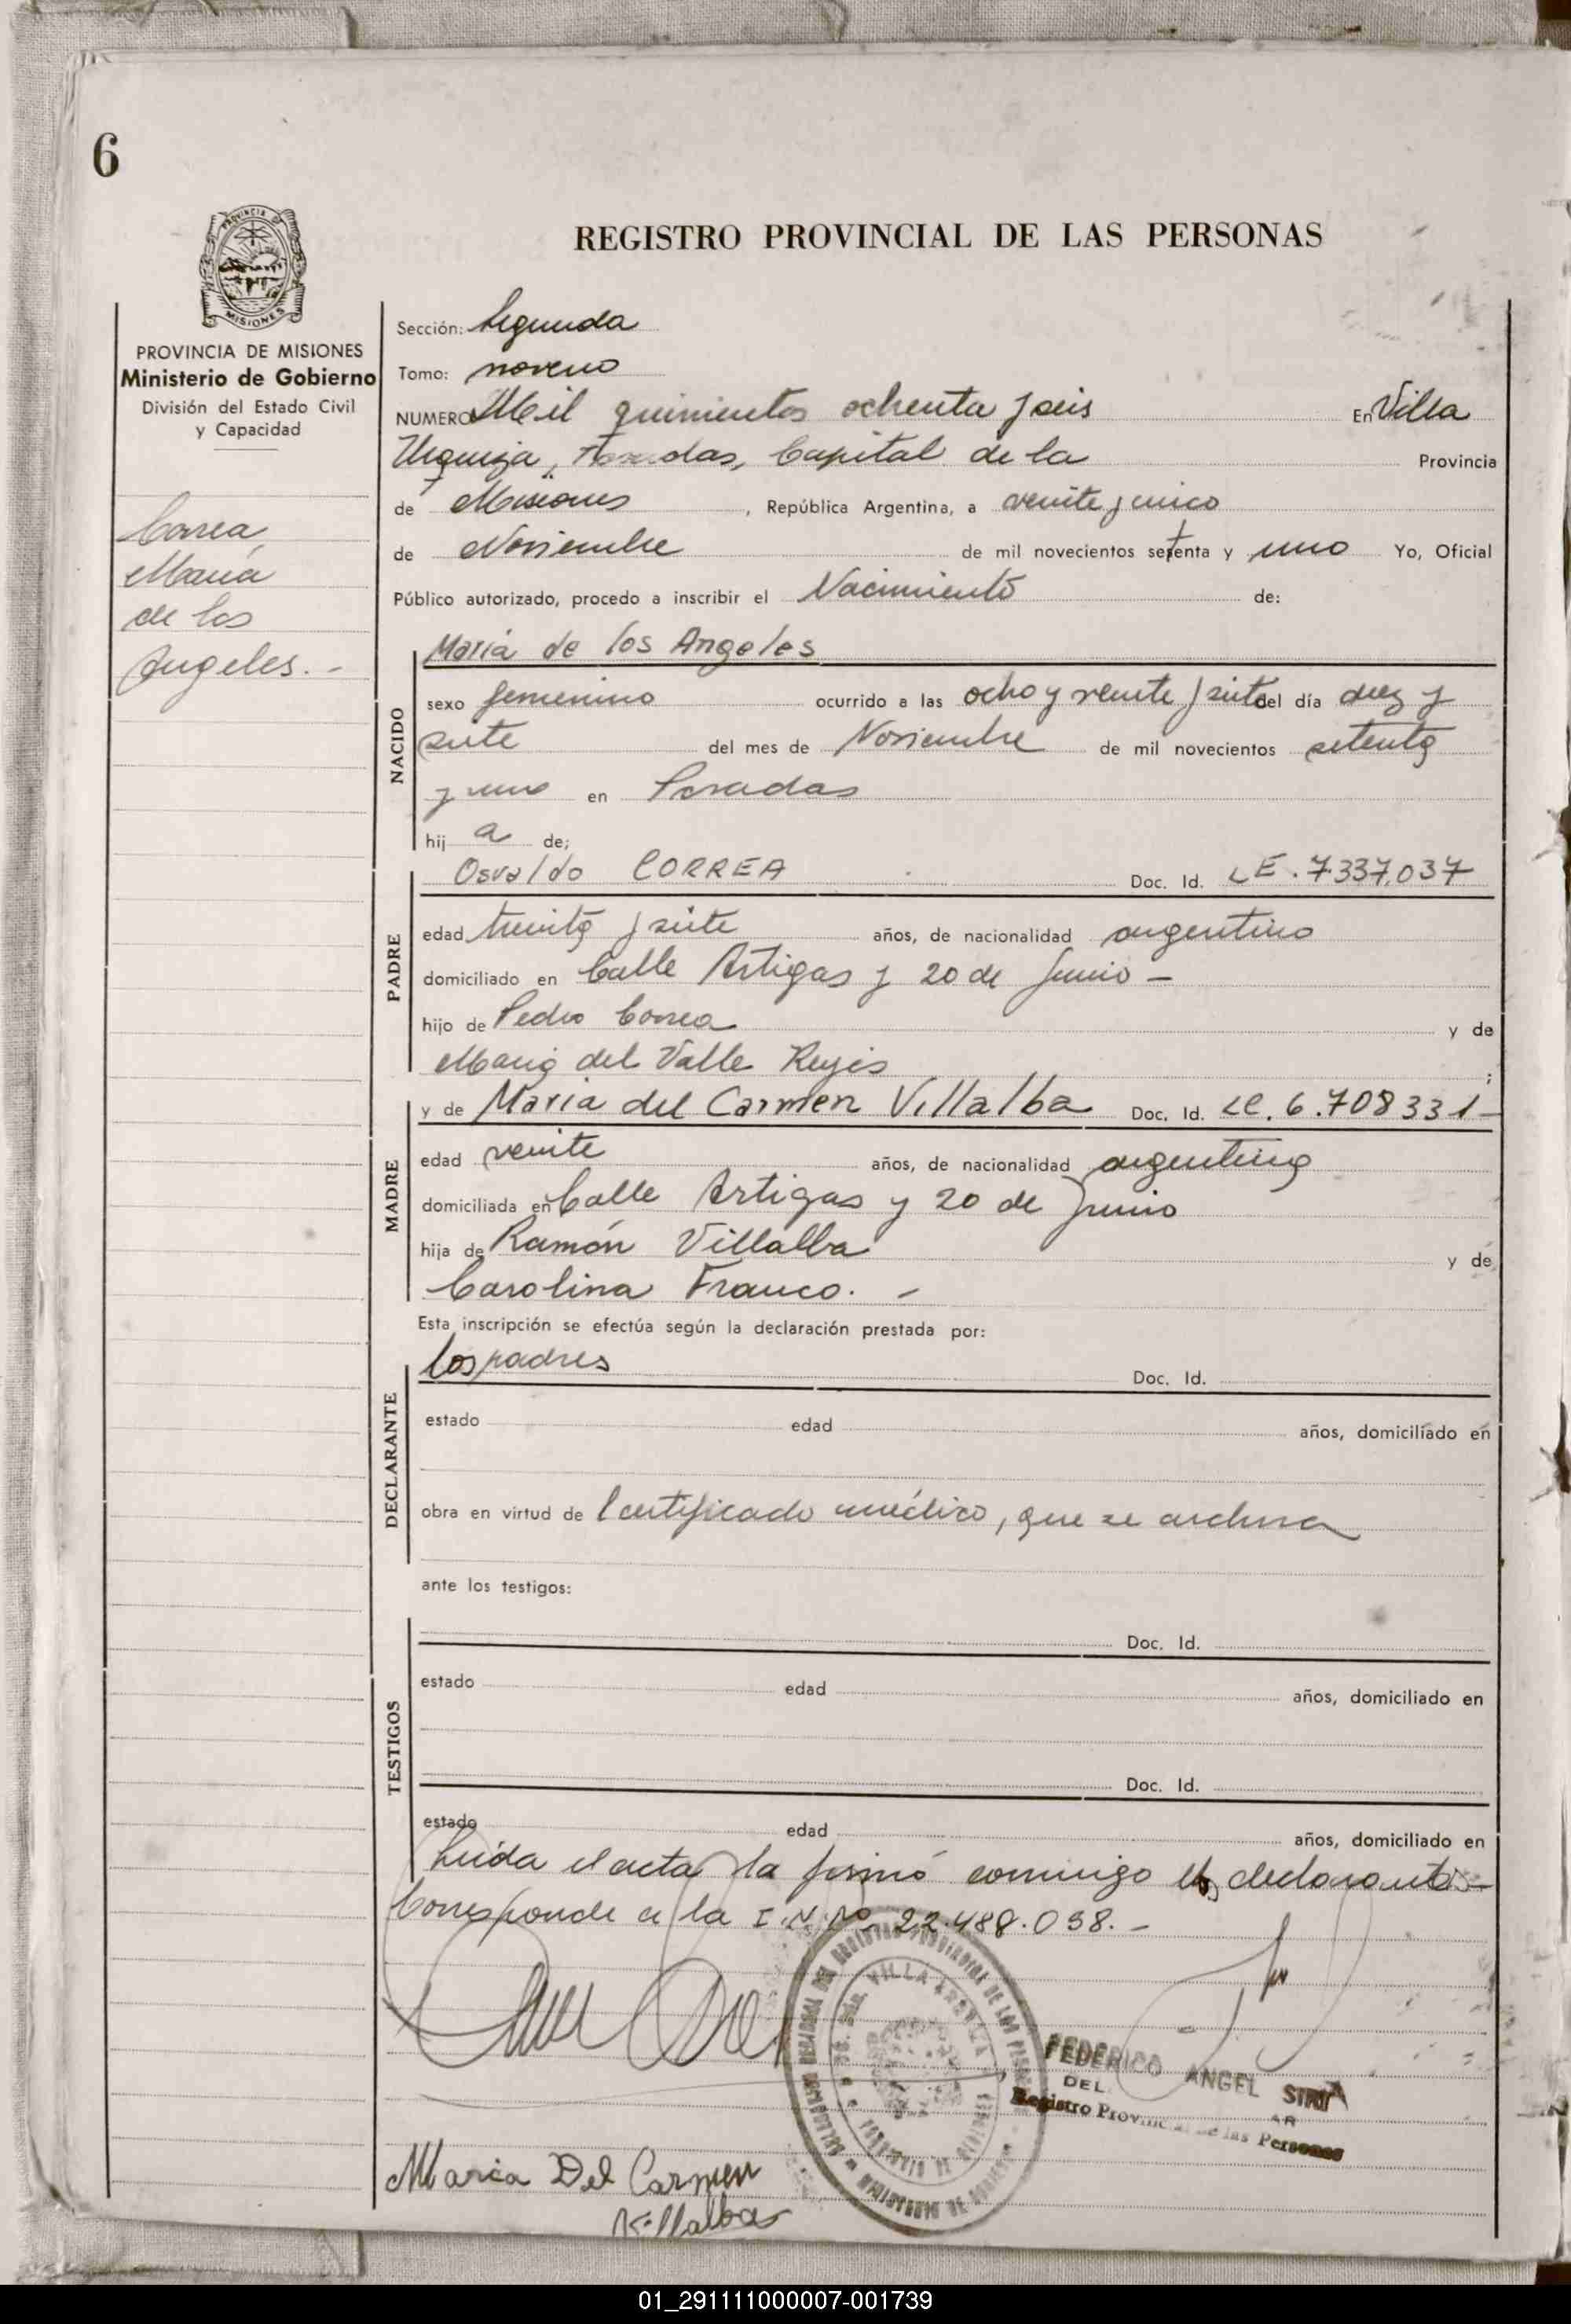 6
REGISTRO PROVINCIAL DE LAS PERSONAS
PROVINCIA DE MISIONES
PROVINCIA DE MISIONES
Ministerio de Gobierno
División del Estado Civil
y Capacidad
Correa,
Maria
de los
Angeles.-
Sección: Segunda
Tomo: noveno
NUMERO Mil quinientos ochenta y seis En Villa
Urquiza, Posadas, Capital de la Provincia
de Misiones, República Argentina, a veinte y cinco
de Noviembre de mil novecientos setenta y uno Yo, Oficial
Público autorizado, procedo a inscribir el Nacimiento de:
NACIDO
Maria de los Angeles
sexo femenino ocurrido a las ocho y veinte y siete del día diez y
siete del mes de Noviembre de mil novecientos setenta
y uno en Posadas
hij a de;
PADRE
Osvaldo CORREA Doc. Id. LE. 7.337.037
edad treinta y siete años, de nacionalidad argentino
domiciliado en Calle Artigas y 20 de Junio -
hijo de Pedro Correa y de
Maria del Valle Reyes ;
MADRE
y de Maria del Carmen Villalba Doc. Id. LC. 6.708331-
edad veinte años, de nacionalidad argentina
domiciliada en Calle Artigas y 20 de Junio
hija de Ramón Villalba y de
Carolina Franco. -
Esta inscripción se efectúa según la declaración prestada por:
DECLARANTE
los padres Doc. Id.
estado edad años, domiciliado en
obra en virtud de Certificado médico, que se archiva
ante los testigos:
TESTIGOS
Doc. Id.
estado edad años, domiciliado en
Doc. Id.
estado edad años, domiciliado en
Leida el acta la firmó conmigo los declarantes-
Corresponde a la I.N. Nº 22.488.038.-
FEDERICO ANGEL
DEL
Registro Provincial de las Personas
Maria Del Carmen
Villalba
01_291111000007-001739